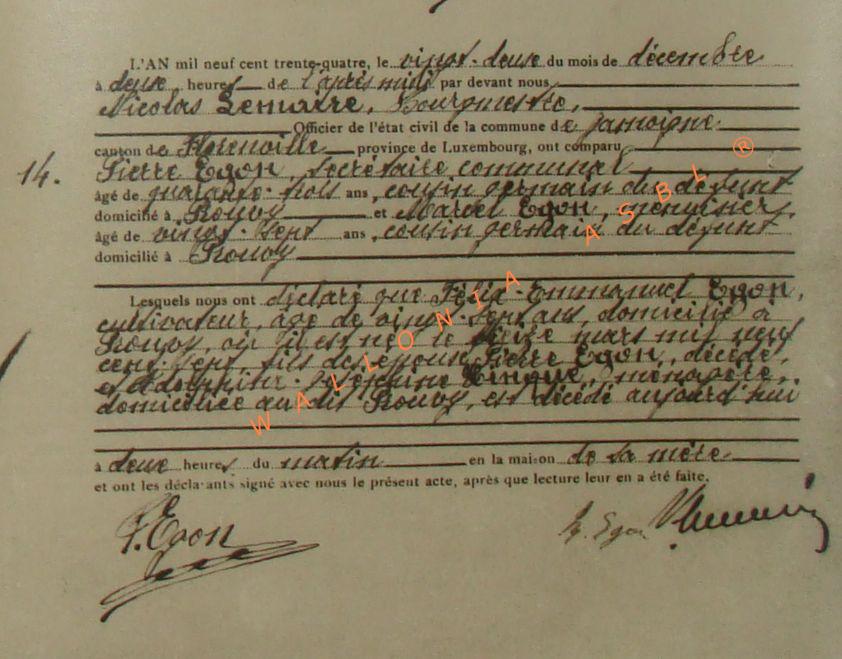 L'AN mil neuf cent trente-quatre, le vingt-deux du mois de décembre
à deux heures de l'après midi par devant nous
Nicolas Lemaire, Bourgmestre,
Officier de l'état civil de la commune de Jamoigne
canton de Florenville province de Luxembourg, ont comparu
14. Pierre Egon, secrétaire communal
âgé de quarante-trois ans, cousin germain du défunt
domicilié à Prouvy et Marcel Egon, menuisier,
âgé de vingt-sept ans, cousin germain du défunt
domicilié à Prouvy
Lesquels nous ont déclaré que Félix-Emmanuel Egon,
cultivateur, âgé de vingt-sept ans, domicilié à
Prouvy, où il est né le mars mil neuf
cent sept, fils des époux Pierre Egon, décédé,
et Joséphine, ménagère,
domiciliée au dit Prouvy, est décédé aujourd'hui
à deux heures du matin en la maison de sa mère
et ont les déclarants signé avec nous le présent acte, après que lecture leur en a été faite.
P. Egon
M. Egon
WALLONIA ASBL ®